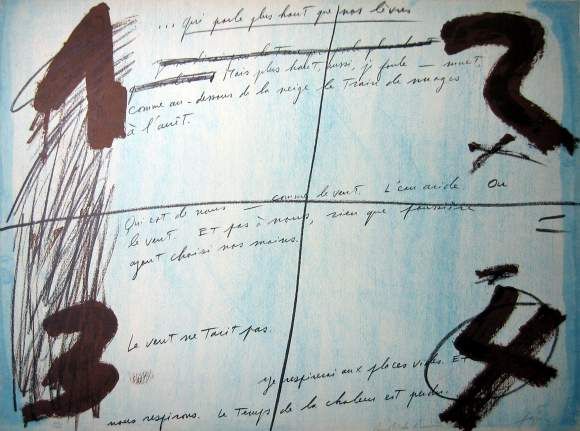 1
2
... qui parle plus haut que nos livres
Mais plus haut, aussi, je parle — muet.
comme au-dessous de la neige le train de nuages
à l'arrêt.
Qui est de nous — comme le vent. L'eau aride Ou
le vent. Et pas à nous, rien que poussière =
ayant choisi nos mains.
Le vent ne tarit pas.
3
4
respirerai aux places vides. Et
nous respirons. Le temps de la chaleur est perdu.